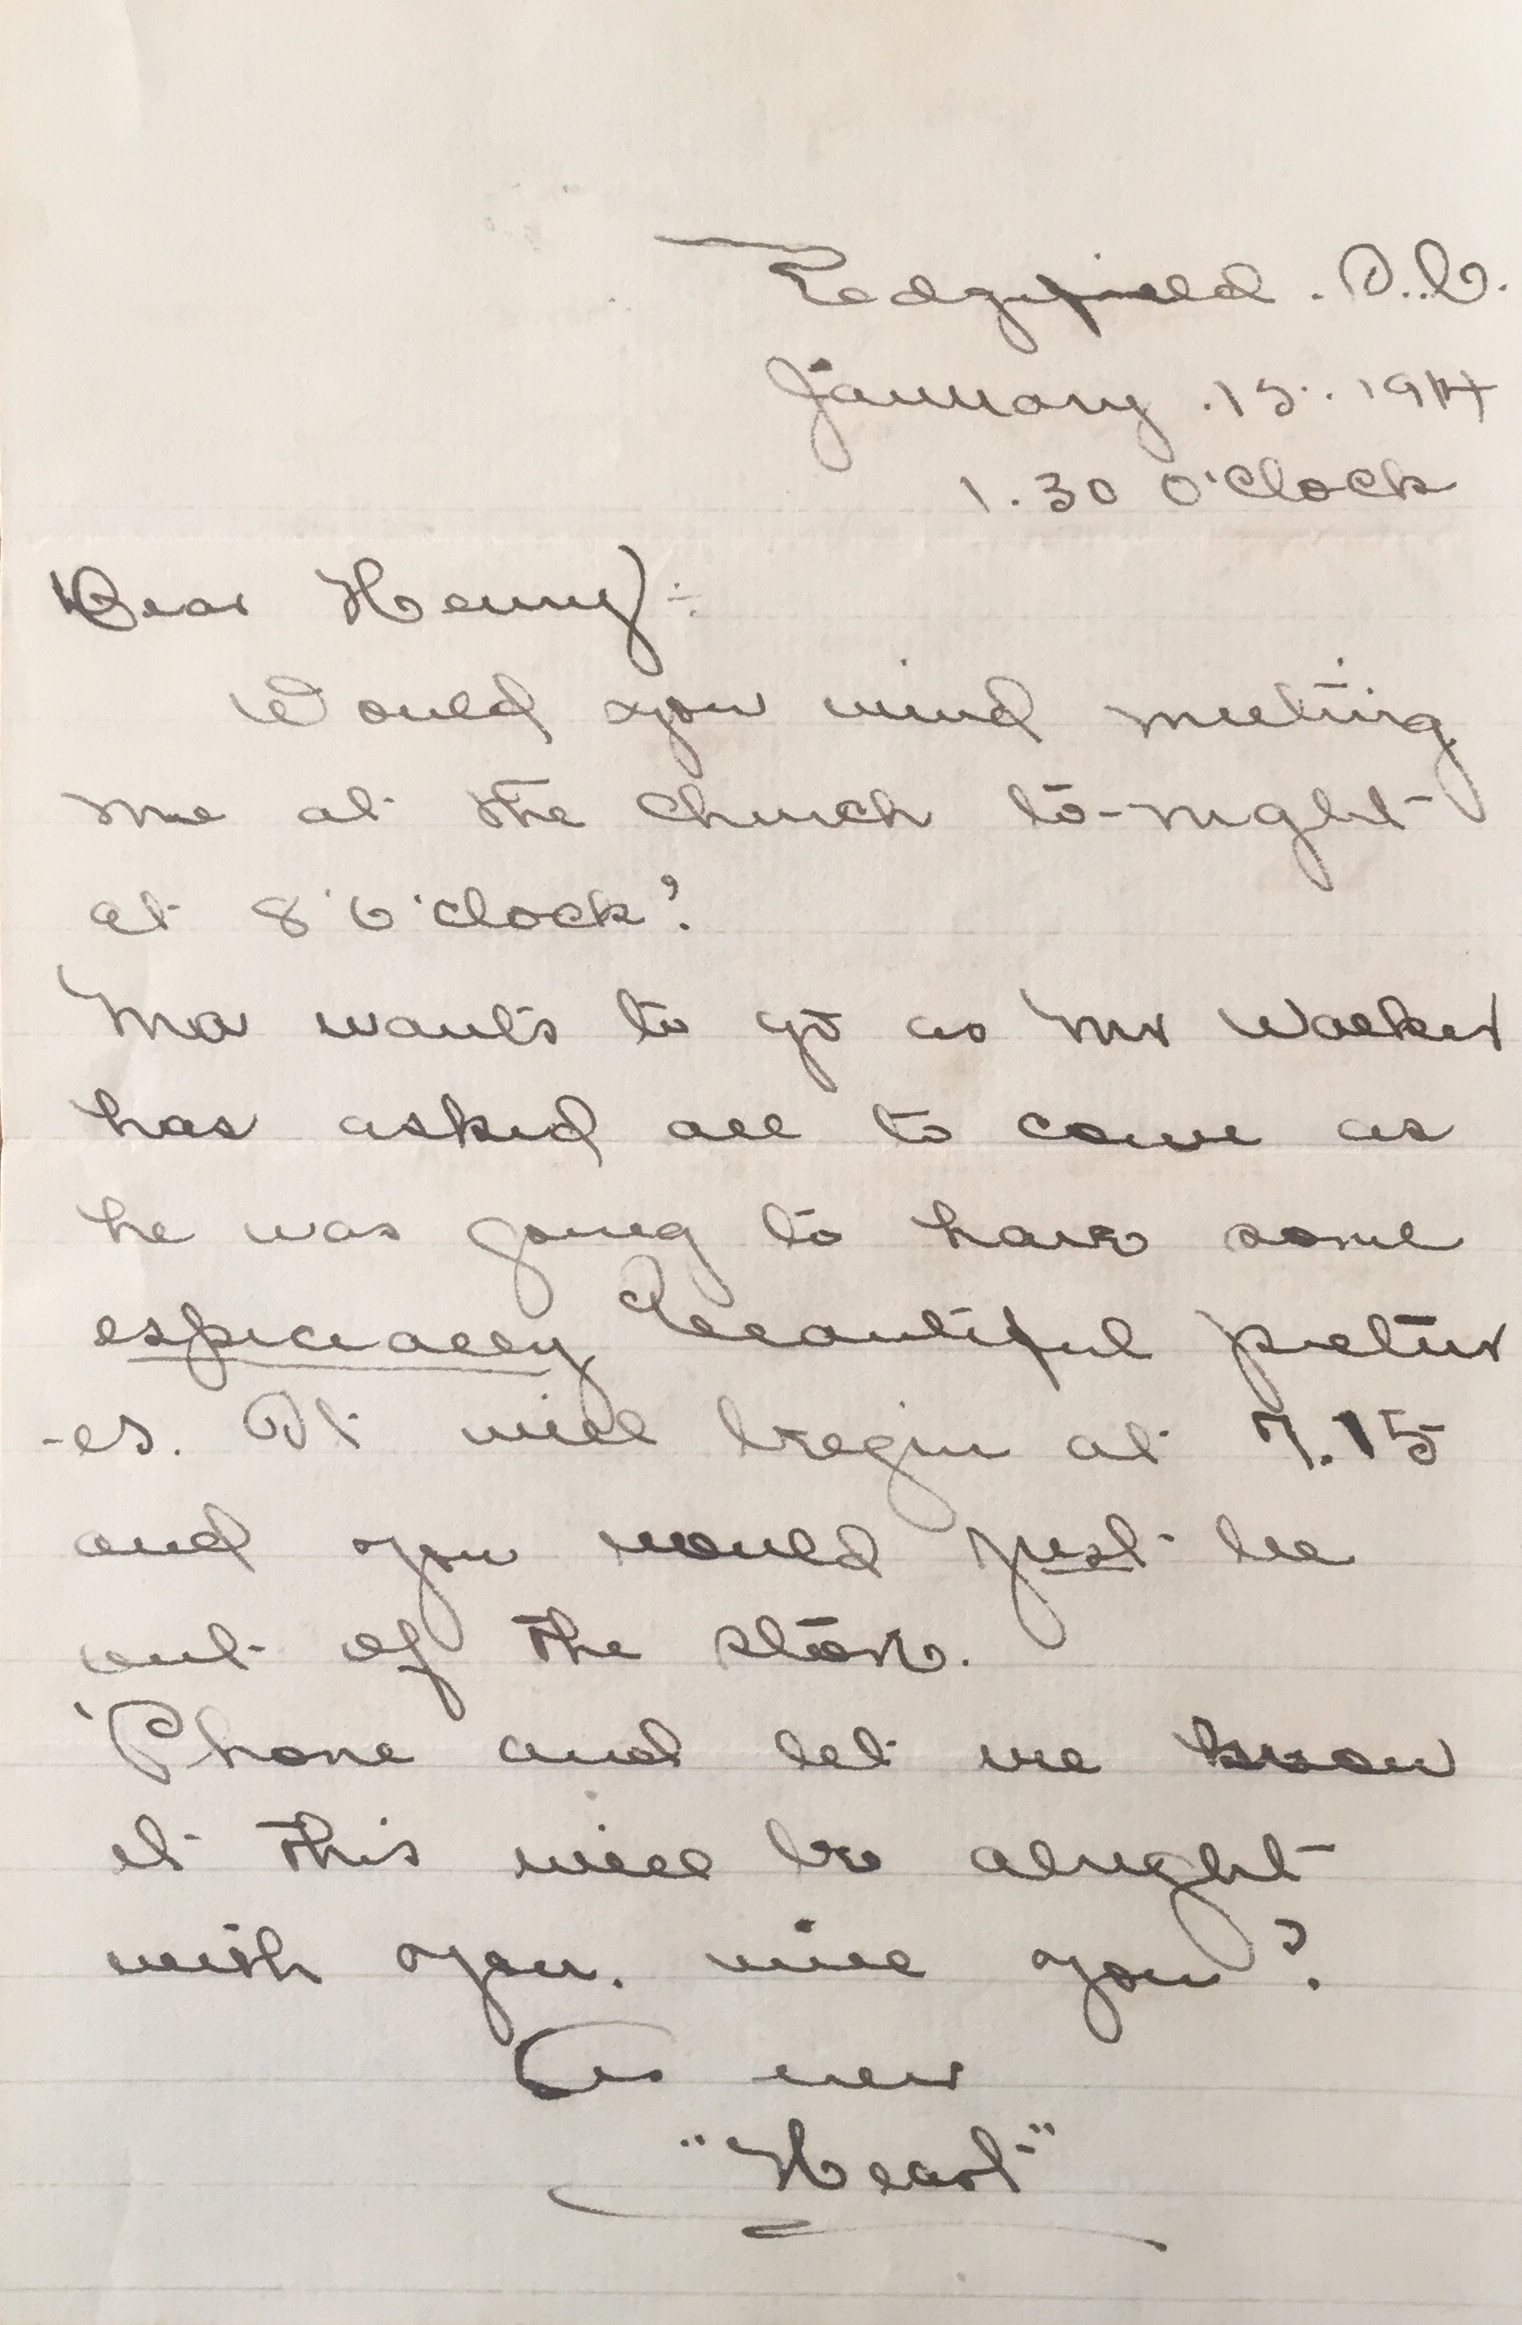 Edgefield. S.C.
January. 15. 1914
1.30 O'Clock
Dear Henry:-
Would you mind meeting
me at the Church to-night
at 8 'O'clock?
Ma wants to go as Mr Walker
has asked all to come as
he was going to have some
especially beautiful pictur
-es. It will begin at 7.15
and you would just be
out of the store.
'Phone and let me know
if this will be alright
with you. will you?
As ever
"Heart"